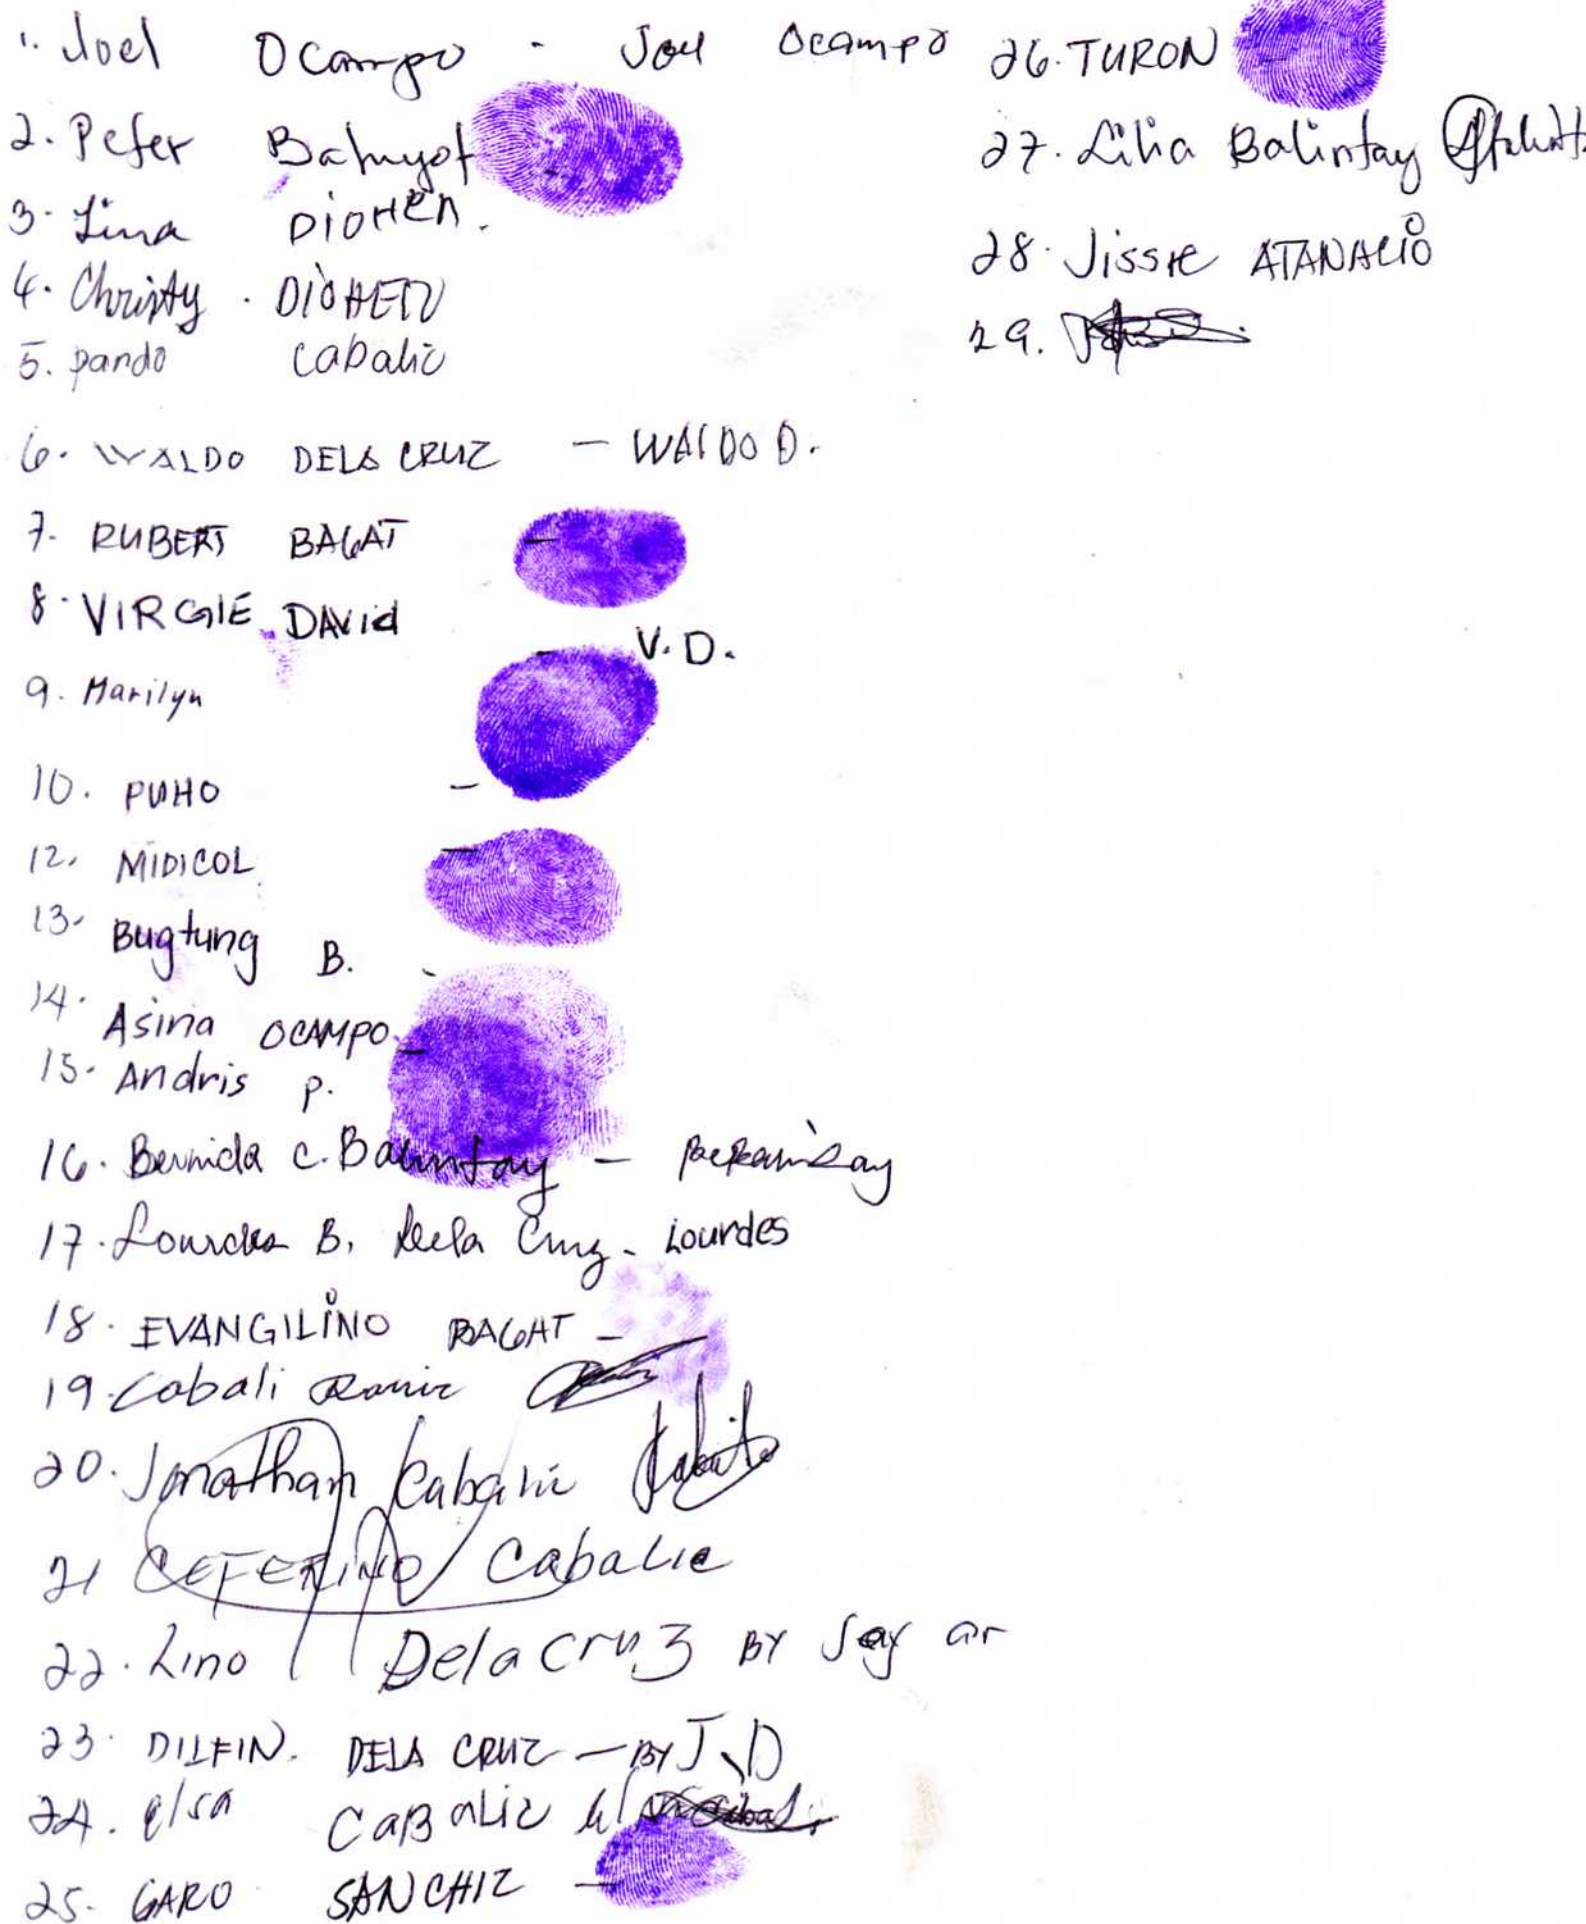 1. Joel Ocampo - Joel Ocampo
2. Pefer
3. Lina DiOHEN.
4. Christy . DIOHEN
5. pando Cabalic
6. WALDO DELA CRUZ - WALDO D.
7. RUBERT BAGAT -
8. VIRGIE DAVid - V. D.
9. Marilyn
10. PUHO -
12. MIDICOL -
13. Bugtung B. -
14. Asina OCAMPO -
15. Andris P.
16. Bernida C. Balintay -
17. Lourdes B. Dela Cruz - Lourdes
18. EVANGILINO BAGAT -
19. Cabali Ramir
20. Jonathan Cabalic
21 CEFERINO Cabalic
22. Lino Dela Cruz BY Jay ar
23. DILFIN. DELA CRUZ - BY J.D
24. elsa CABALIC
25. GARO SANCHIZ -
26. TURON
27. Lilia Balintay
28. Jissie ATANACIO
29.